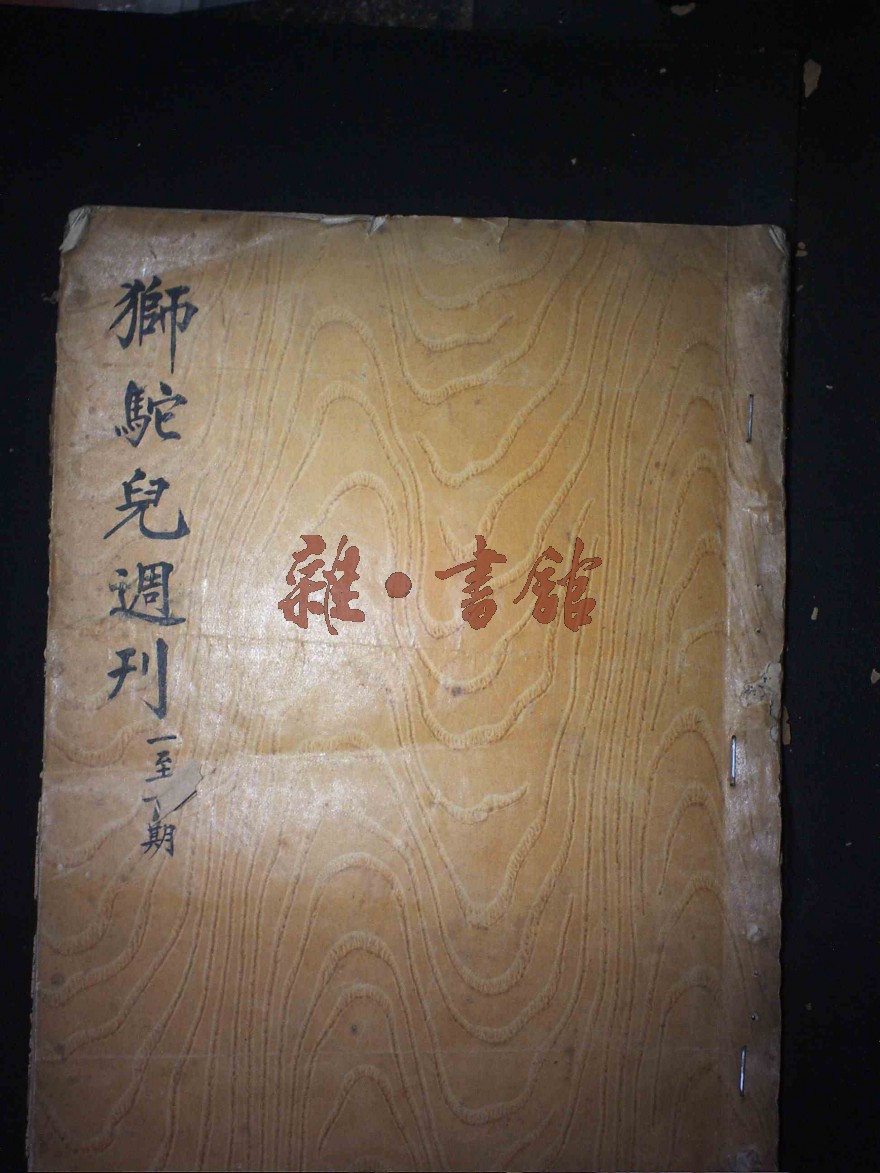 獅駝兒週刊
一至 期
雜·書館